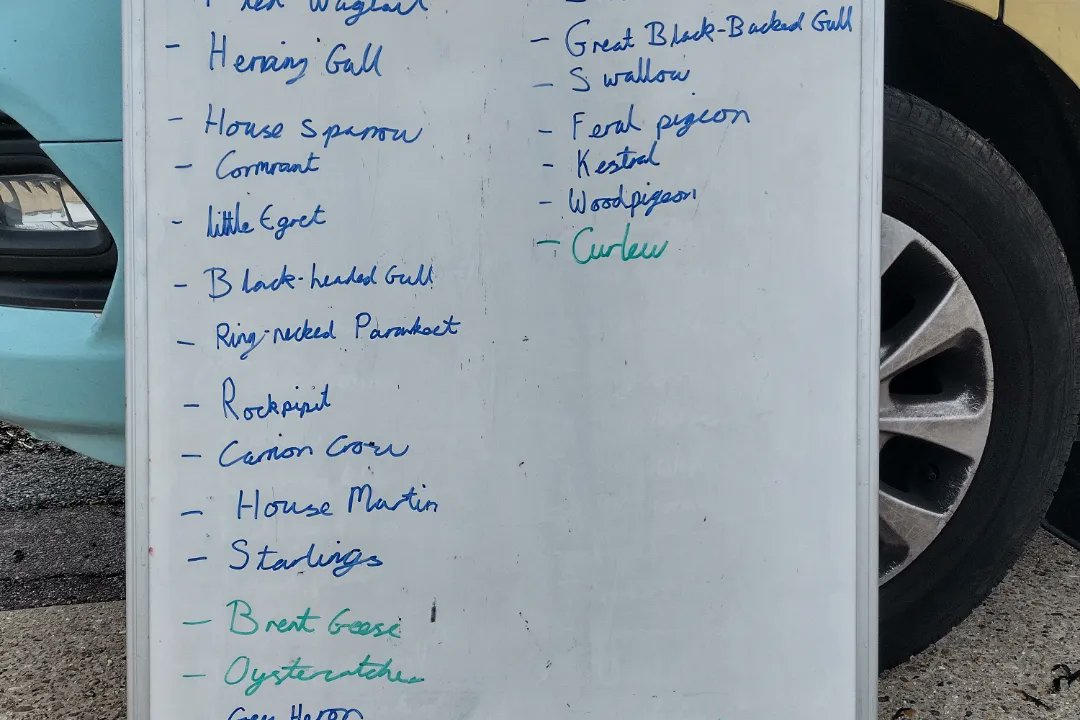 Wagtail
- Herring Gull
- House Sparrow
- Cormrant
- little Egret
- Black-headed Gull
- Ring-necked Parakeet
- Rockpipit
- Carrion Crow
- House Martin
- Starlings
- Brent Geese
- Oystercatcher
Grey Heron
- Great Black-Backed Gull
- Swallow
- Feral pigeon
- Kestral
- Woodpigeon
- Curlew